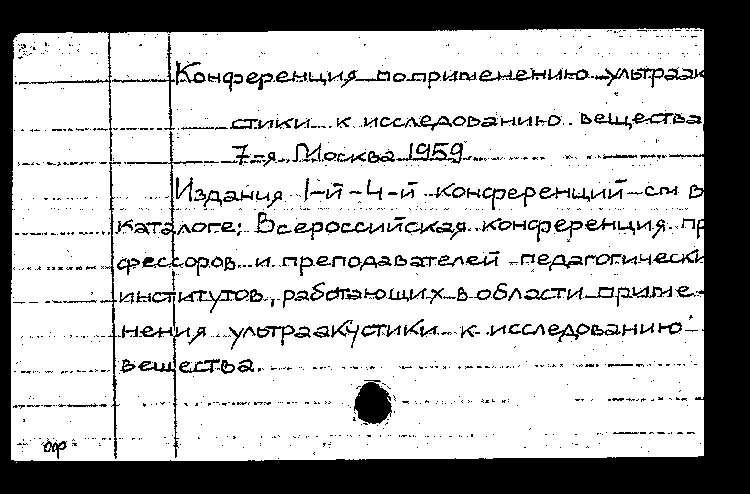 Конференция по применению ультраак
стики к исследованию вещества,
7-я Москва 1959
Издания 1-й-4-й конференций см в
каталоге: Всероссийская конференция пр
фессоров и преподавателей педагогически
институтов, работающих в области приме-
нения ультраакустики к исследованию
вещества.